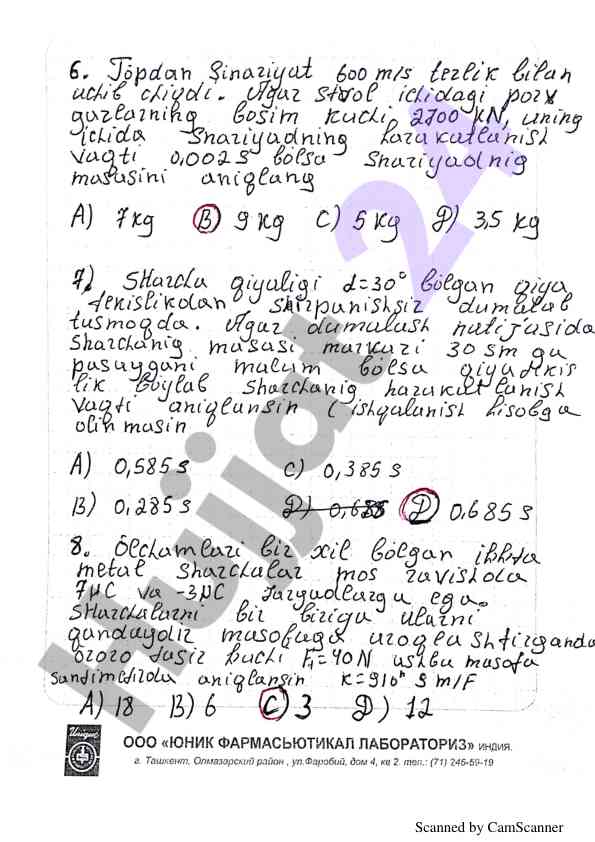 6. Töpdan Sinariyat 600 m/s tezlik bilan
uchib chiqdi. Agar stvol ichidagi porx
gazlarning bosim kuchi 2700 kN, uning
ichida Snariyadning harakatlanish
vaqti 0,002 s bölsa Snariyadnig
massasini aniqlang
A) 7 kg B) 9 kg C) 5 kg D) 3,5 kg
7) Sharcha qiyaligi d=30° bölgan qiya
tekislikdan sirpanishsiz dumalab
tushmoqda. Agar dumalash natijasida
sharchanig massasi markazi 30 sm ga
pasaygani malum bölsa qiya tekis
lik böylab sharchanig harakatlanish
vaqti aniqlansin (ishqalanish hisobga
olinmasin
A) 0,585 s C) 0,385 s
B) 0,285 s D) 0,685 D) 0,685 s
8. Ölchamlari bir xil bölgan ikkita
metal sharchalar mos ravishda
7μC va -3μC zaryadlarga ega.
Sharchalarni bir biriga ularni
qandaydir masofaga uzoqlashtirganda
özaro tasir kuchi F1=40N ushbu masofa
Santimetrda aniqlansin K=910⁹ m/F
A) 18 B) 6 C) 3 D) 12
Hujjat 24
Unique
ООО «ЮНИК ФАРМАСЬЮТИКАЛ ЛАБОРАТОРИЗ» ИНДИЯ.
г. Ташкент, Олмазарский район , ул.Фаробий, дом 4, кв 2. тел.: (71) 246-59-19
Scanned by CamScanner